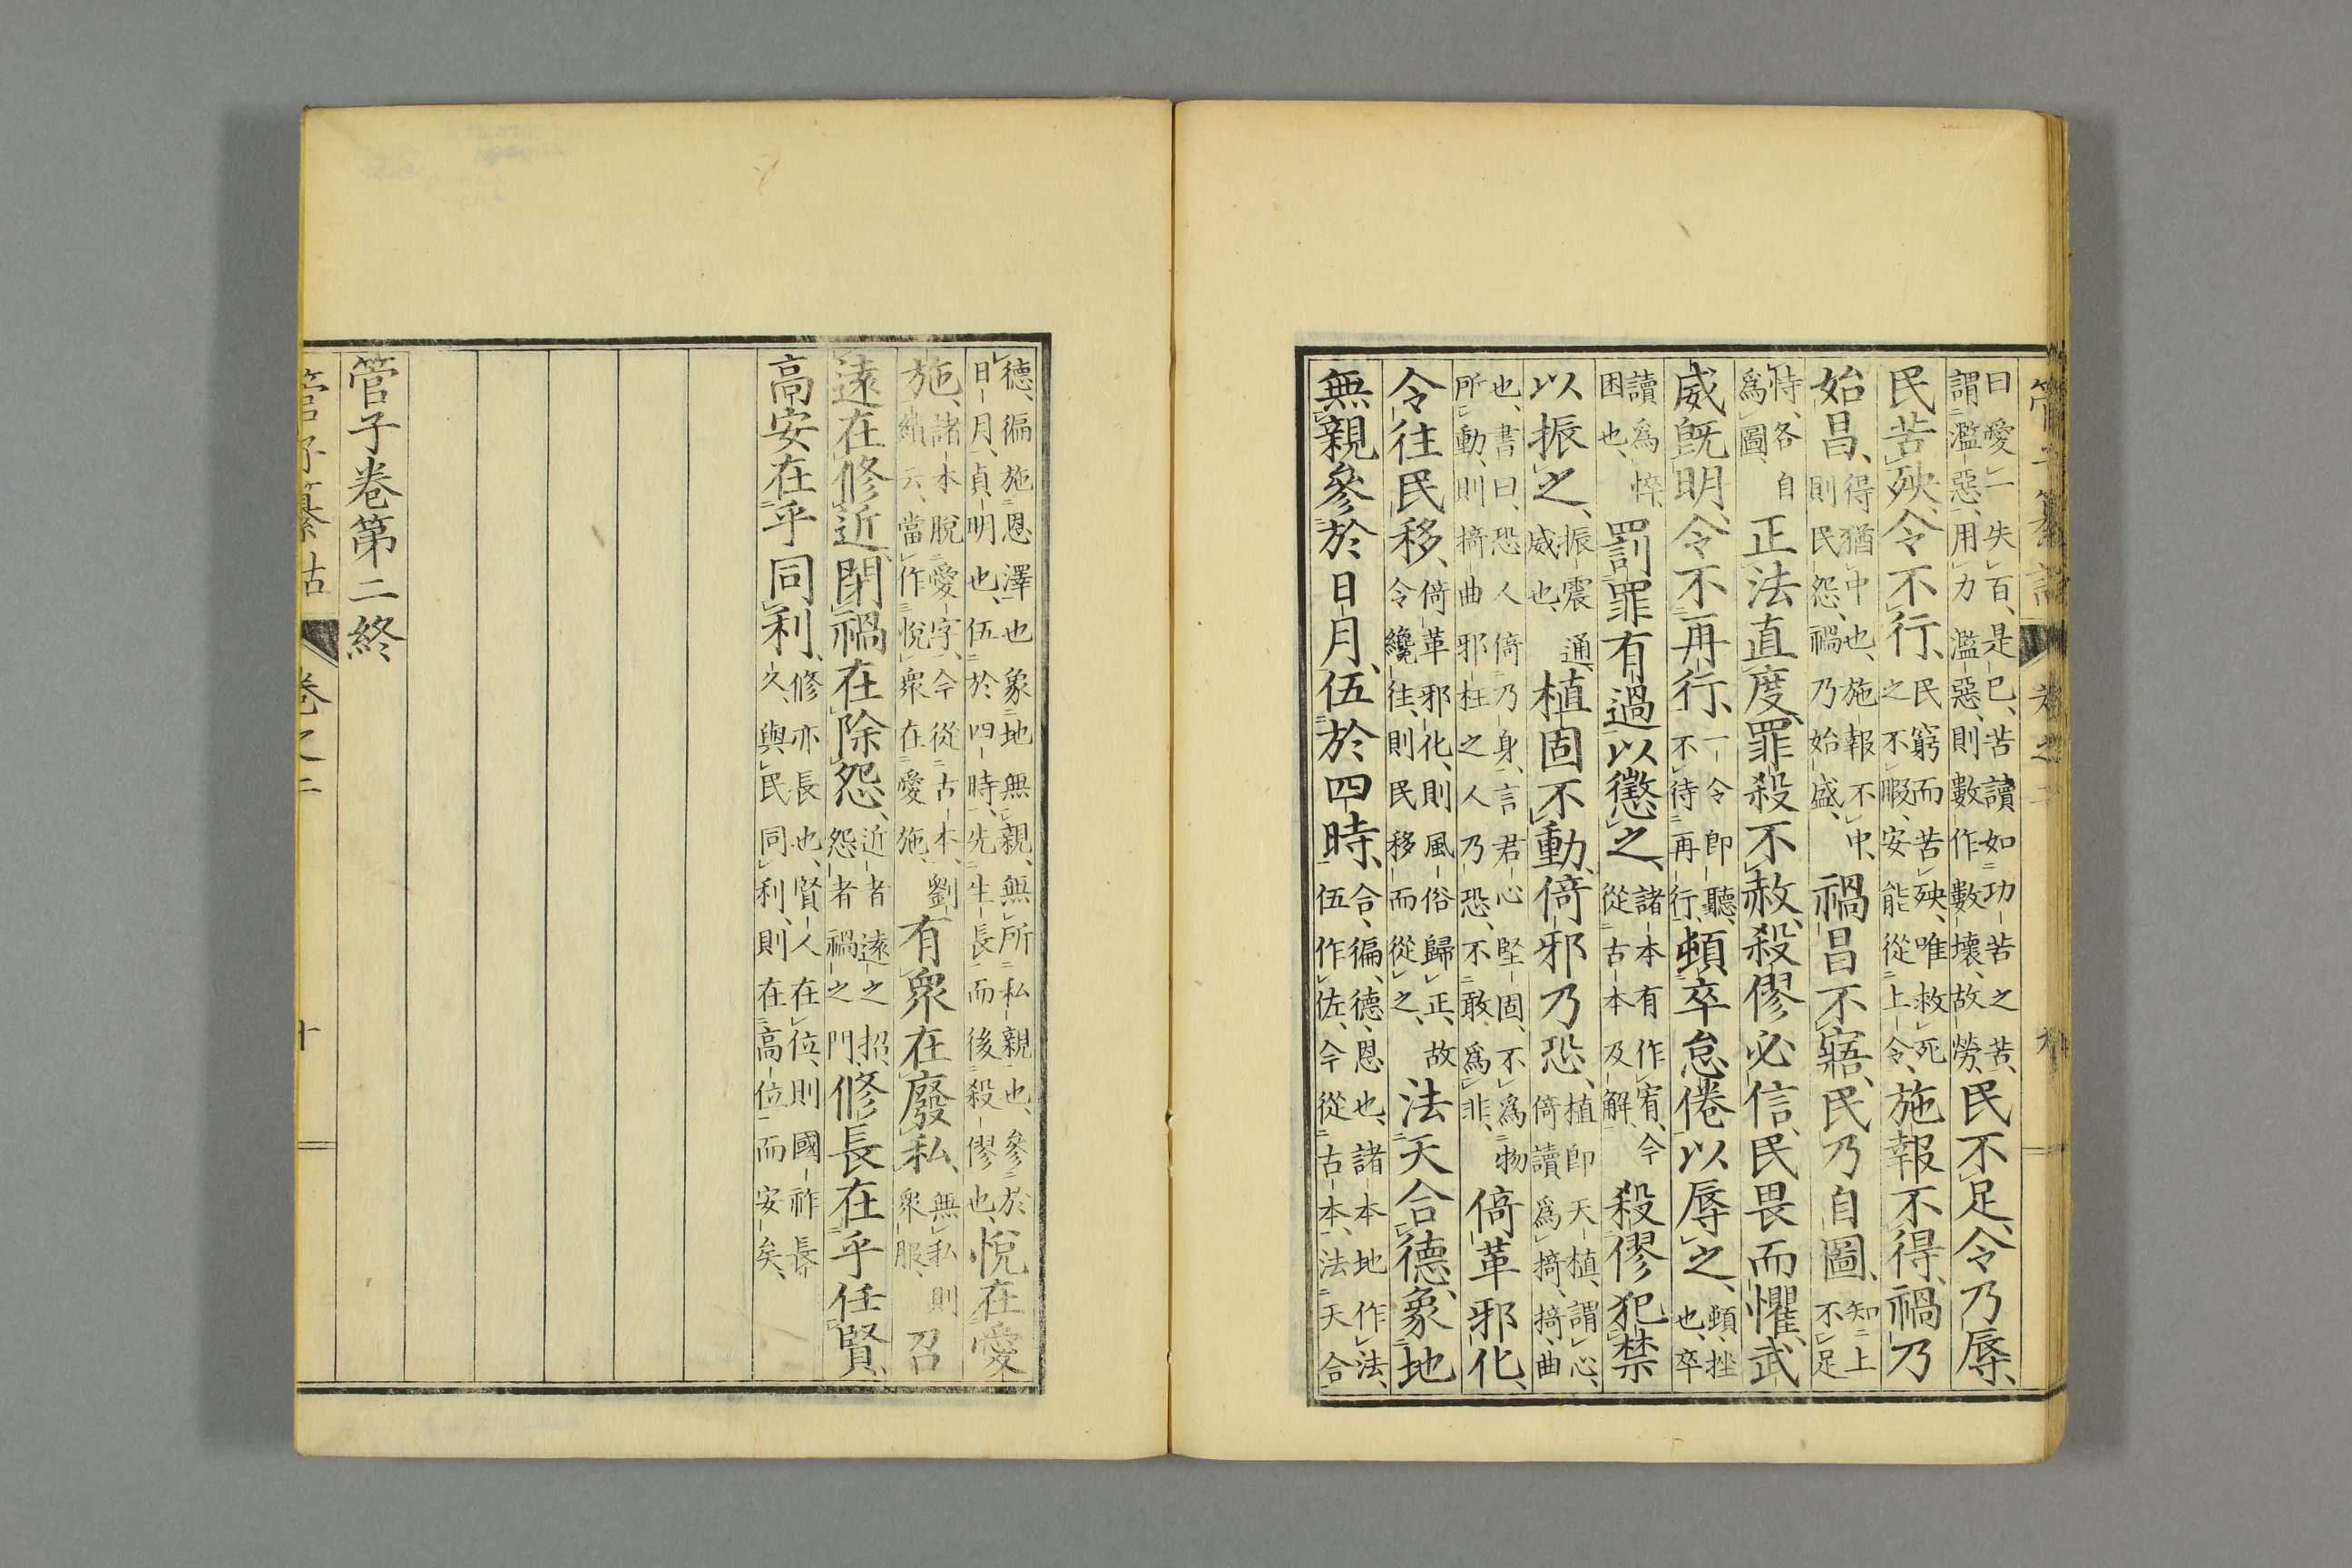 管子纂詁 卷之二
曰愛一失百、是已、苦讀如功苦之苦、謂濫惡、用力濫惡、則數作數壞、故勞、民不足、令乃辱、
民苦殃、令不行、民窮而苦殃、唯救死之不暇、安能從上令、施報不得、禍乃
始昌、得猶中也、施報不中、則民怨、禍乃始盛、禍昌不寤、民乃自圖、知上不足
恃、各自爲圖、正法直度、罪殺不赦、殺僇必信、民畏而懼、武
威既明、令不再行、一令即聽、不待再行、頓卒怠倦以辱之、頓、挫也、卒
讀爲悴、困也、罰罪有過以懲之、諸本有作宥、今從古本及解、殺僇犯禁
以振之、振震通、威也、植固不動、倚邪乃恐、植即天植、謂心、倚讀爲掎、掎、曲
也、書曰、恐人倚乃身、言君心堅固、不爲物所動、則掎曲邪枉之人乃恐、不敢爲非、倚革邪化、
令往民移、倚革邪化、則風俗歸正、故令纔往、則民移而從之、法天合德、象地
無親、參於日月、伍於四時、合、徧、德、恩也、諸本地作法、伍作佐、今從古本、法天合
德、徧施恩澤也、象地無親、無所私親也、參於日月、貞明也、伍於四時、先生長而後殺僇也、悅在愛
施、諸本脫愛字、今從古本、劉績云、當作悅衆在愛施、有衆在廢私、無私則衆服、召
遠在修近、閉禍在除怨、近者遠之招、怨者禍之門、修長在乎任賢、
高安在乎同利、修亦長也、賢人在位、則國祚長久、與民同利、則在高位而安矣、
管子卷第二終
管子纂詁 卷之二 十